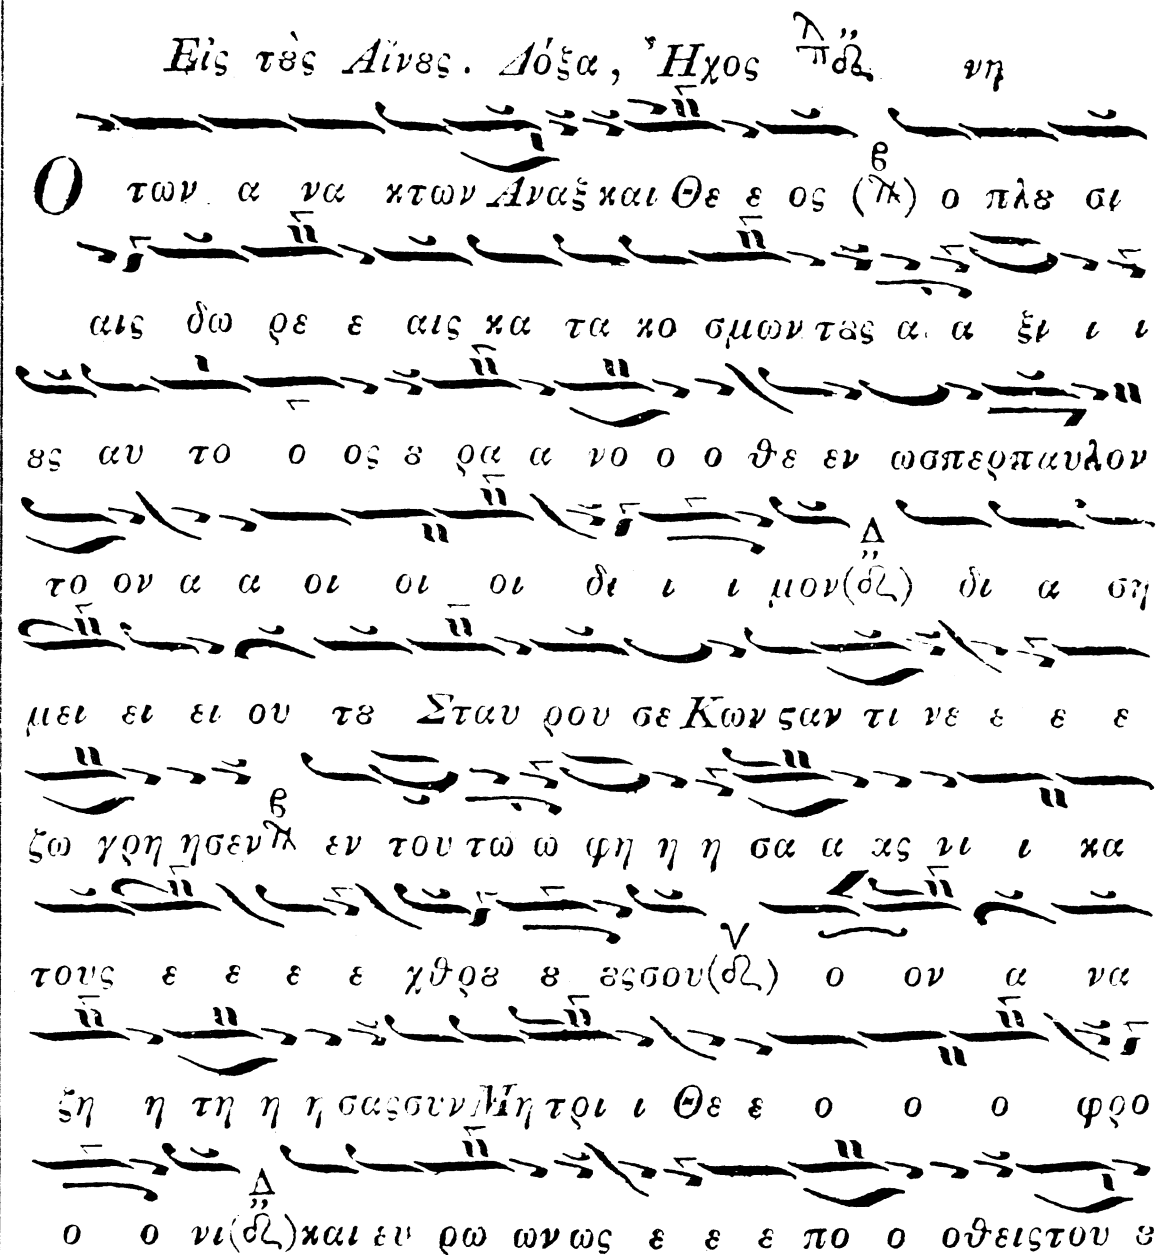 Εἰς τȣ̀ς Αἴνȣς. Δόξα, Ἦχος λ π δ νη
Ο των α να κτων Αναξ και Θε ε ος (π) ο πλȣ σι
αις δω ρε ε αις κα τα κο σμων τȣς α α ξι ι ι
ȣς αυ το ο ος ȣ ρα α νο ο ο θε εν ωσπερπαυλον
το ον α α οι οι οι δι ι ι μον (Δ) δι α ση
μει ει ει ου τȣ Σταυ ρου σε Κων ςαν τι νε ε ε ε
ζω γρη ησεν π εν του τω ω φη η η σα α ας νι ι κα
τους ε ε ε ε χθρȣ ȣ ȣςσου (ν) ο ον α να
ζη η τη η η σαςσυν Μη τρι ι Θε ε ο ο ο φρο
ο ο νι (Δ) και ευ ρω ων ως ε ε ε πο ο οθειςτου ȣ